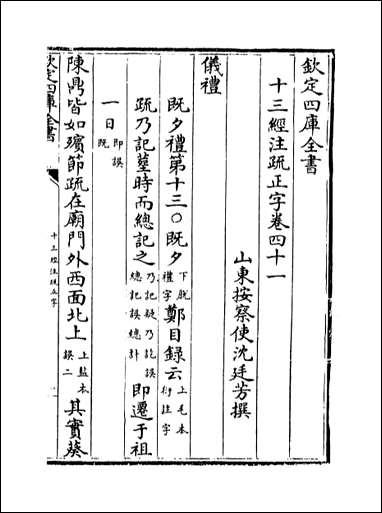 欽定四庫全書
十三經注疏正字卷四十一
山東按察使沈廷芳撰
儀禮
既夕禮第十三〇既夕下脱禮字鄭目録云上毛本衍注字
疏乃記葬時而總記之乃記疑乃訖誤總記誤總計即遷于祖
一日即誤既
陳鼎皆如殯節疏在廟門外西面北上上監本誤二其實葵
欽定四庫全書
十三經注疏正字
一